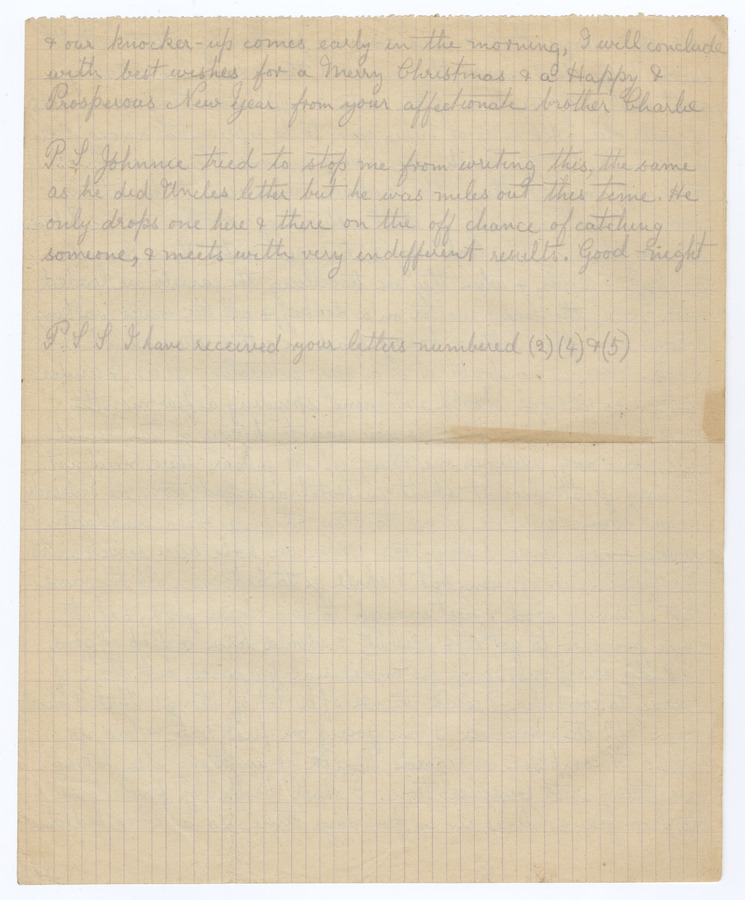 & our knocker-up comes early in the morning, I will conclude
with best wishes for a Merry Christmas & a Happy &
Prosperous New Year from your affectionate brother Charlie
P.S. Johnnie tried to stop me from writing this, the same
as he did Uncles letter but he was miles out this time. He
only drops one here & there on the off chance of catching
someone, & meets with very indifferent results. Good-night
P.S S. I have received your letters numbered (2) (4) & (5)